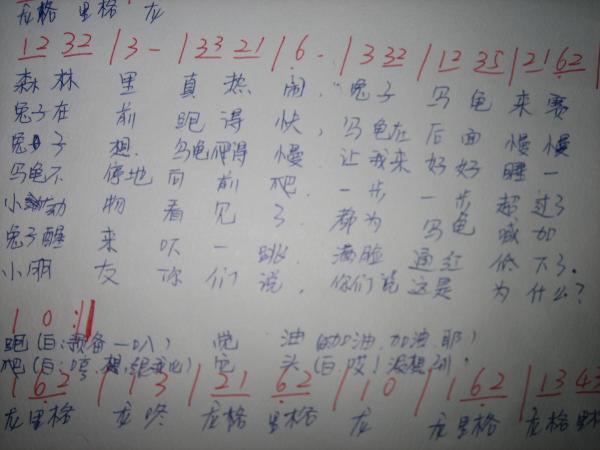 龙格 里格 龙
12 32 | 3 - | 33 21 | 6 - | 3 32 | 12 35 | 21 62 |
森林 里 真热 闹, 兔子 乌龟 来赛
兔子在 前 跑得 快, 乌龟在 后面 慢慢
兔子 想, 乌龟爬得 慢, 让我来 好好 睡一
乌龟不 停地 向前 爬, 一步 一步 超过了
小动 物 看见 了, 都为 乌龟 喊加
兔子醒 来 吓一 跳, 满脸 通红 低下了
小朋 友 你们 说, 你们说 这是 为什么?
1 0 :||
跑(白:预备一 叭) 觉 油(加油.加油.耶)
爬(白: 想 ) 头(白:哎!没想到
| 1 62 | 1 3 | 21 62 | 1 0 | 1 62 | 13 43
龙里格 龙咚 龙格 里格 龙 龙里格 龙格